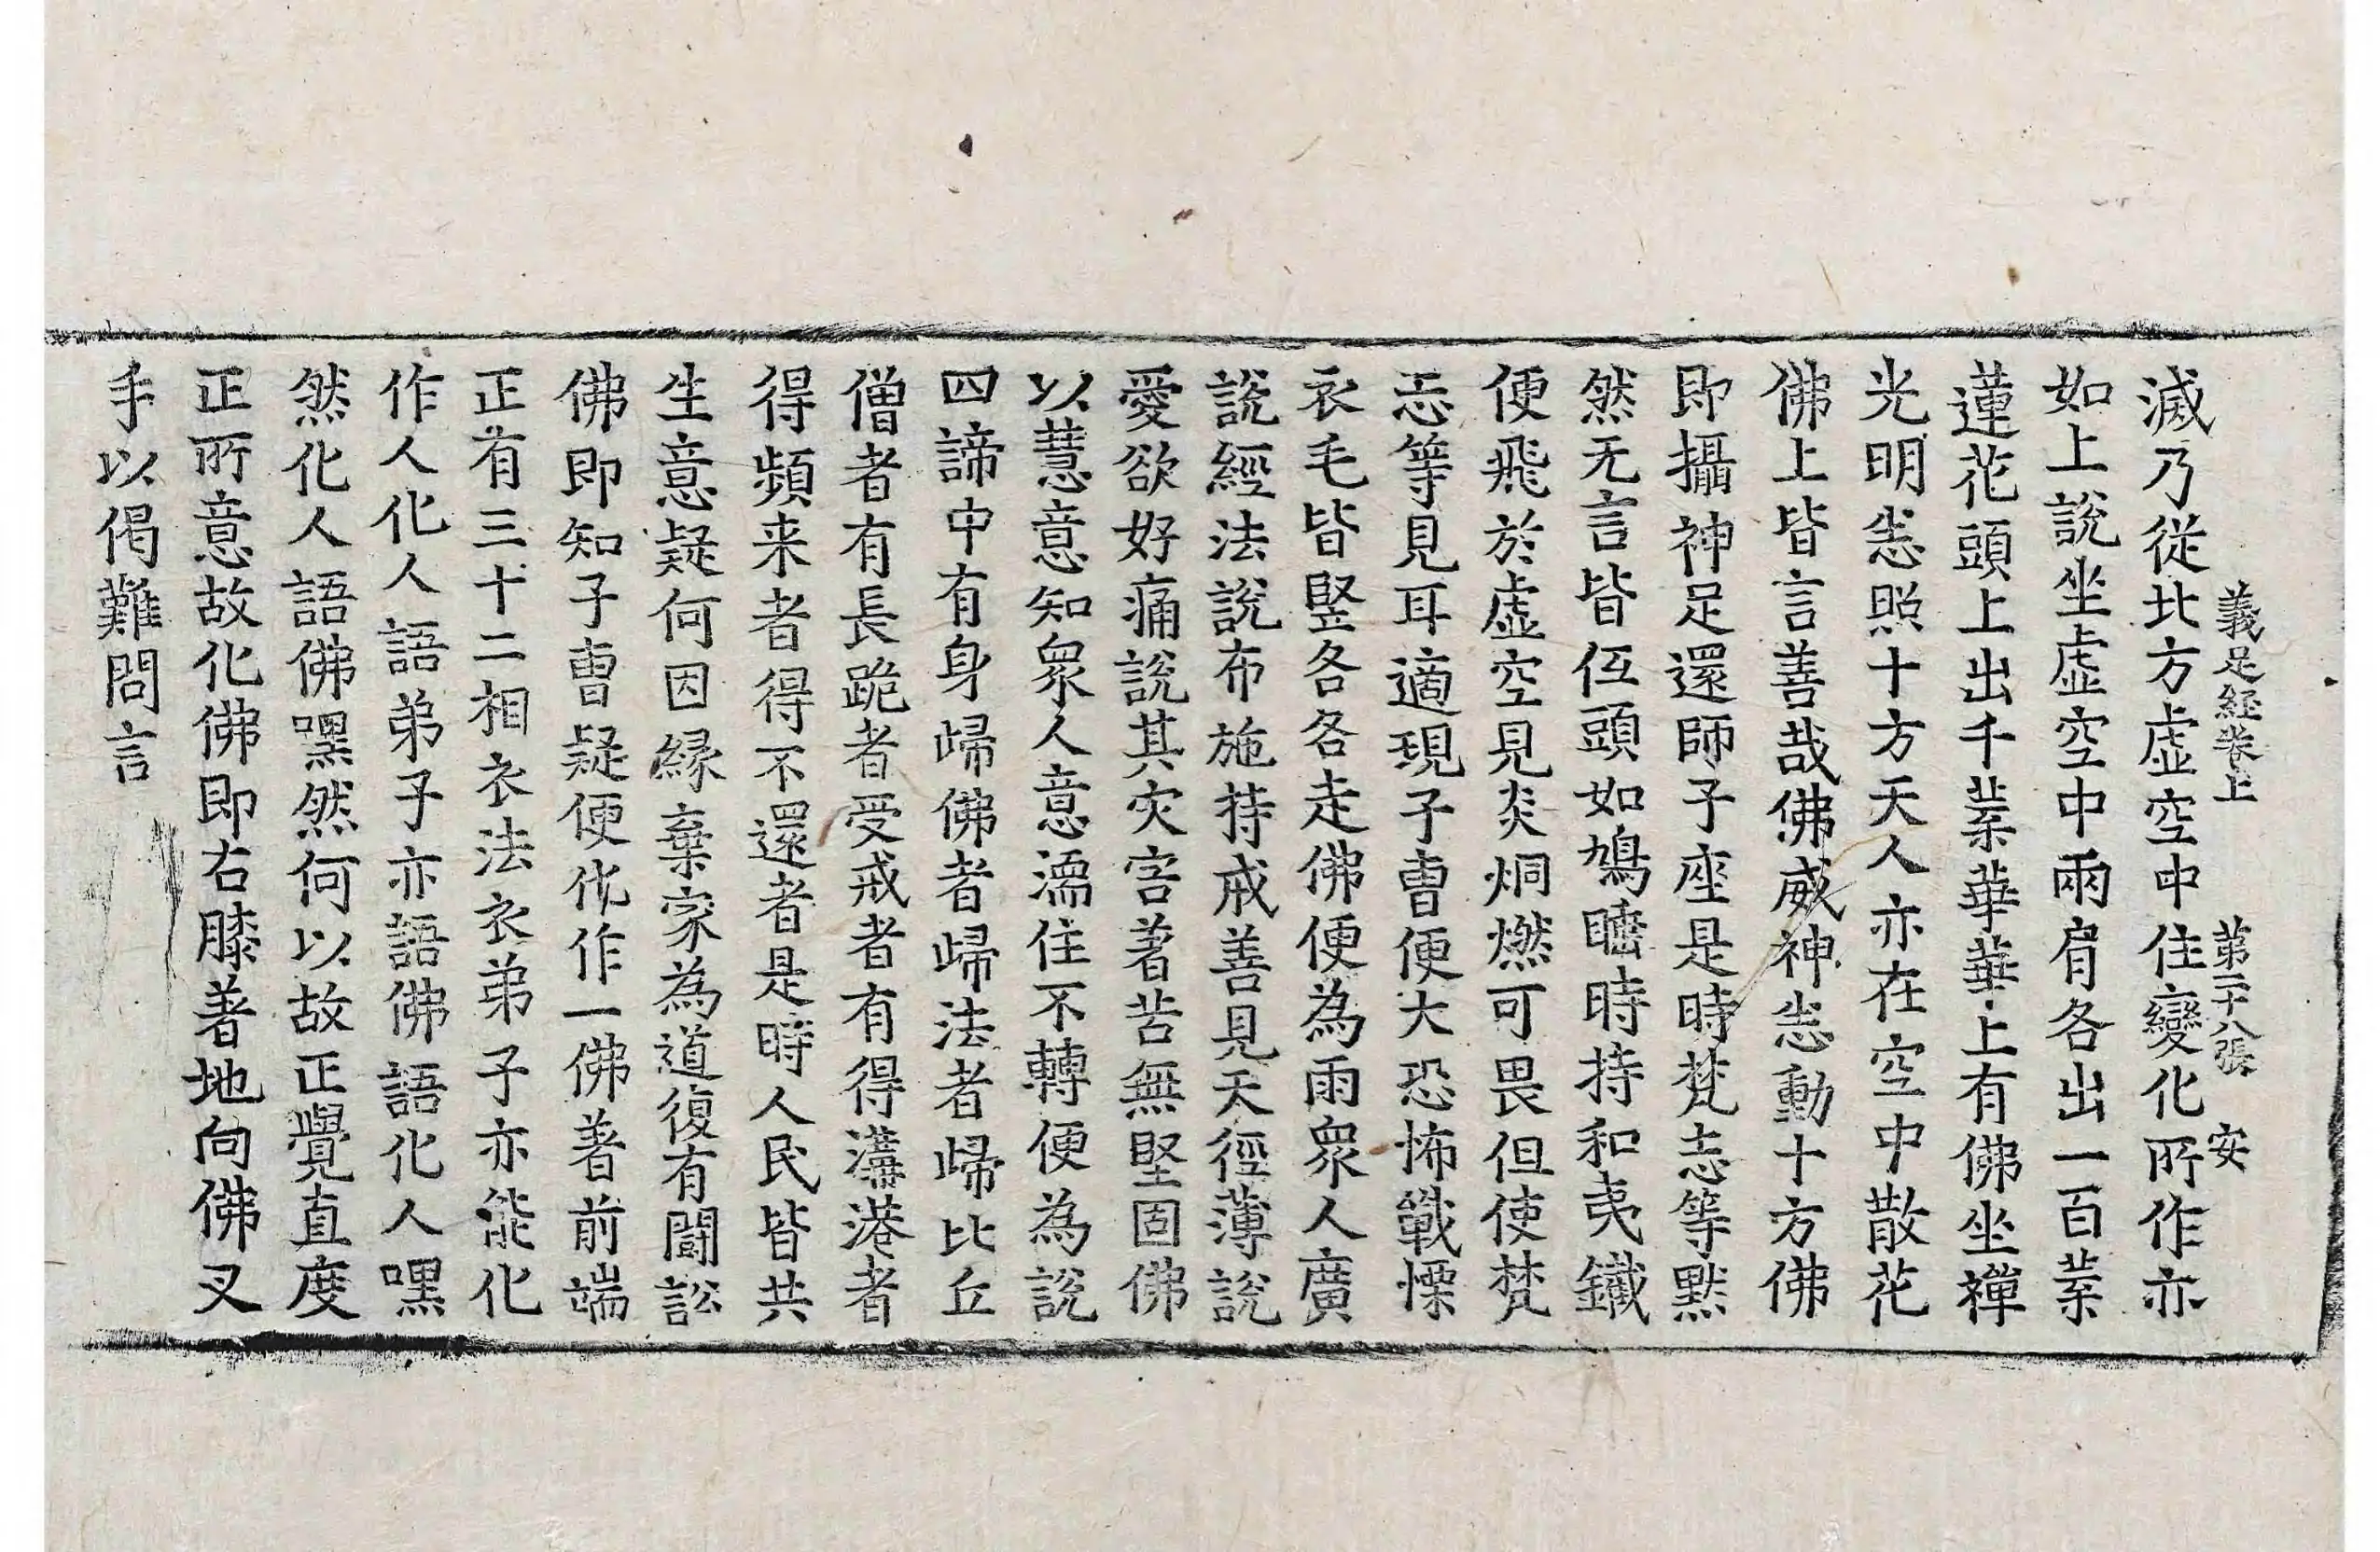 義足經卷上 第二十八張 安
滅乃從北方虛空中住變化所作亦
如上說坐虛空中兩肩各出一百葉
蓮花頭上出千葉華華上有佛坐禪
光明悉照十方天人亦在空中散花
佛上皆言善哉佛威神悉動十方佛
即攝神足還師子座是時梵志等默
然无言皆伍頭如鳩睡時持和夷鐵
便飛於虛空見炎烔燃可畏但使梵
志等見耳適現子曹便大恐怖戰慄
衣毛皆竪各各走佛便為雨衆人廣
說經法說布施持戒善見天徑薄說
愛欲好痛說其灾害著苦無堅固佛
以慧意知衆人意濡住不轉便為說
四諦中有身歸佛者歸法者歸比丘
僧者有長跪者受戒者有得溝港者
得頻来者得不還者是時人民皆共
生意疑何因緣棄家為道復有闘訟
佛即知子曹疑便化作一佛著前端
正有三十二相衣法衣弟子亦能化
作人化人語弟子亦語佛語化人嘿
然化人語佛嘿然何以故正覺直度
正所意故化佛即右膝著地向佛叉
手以偈難問言